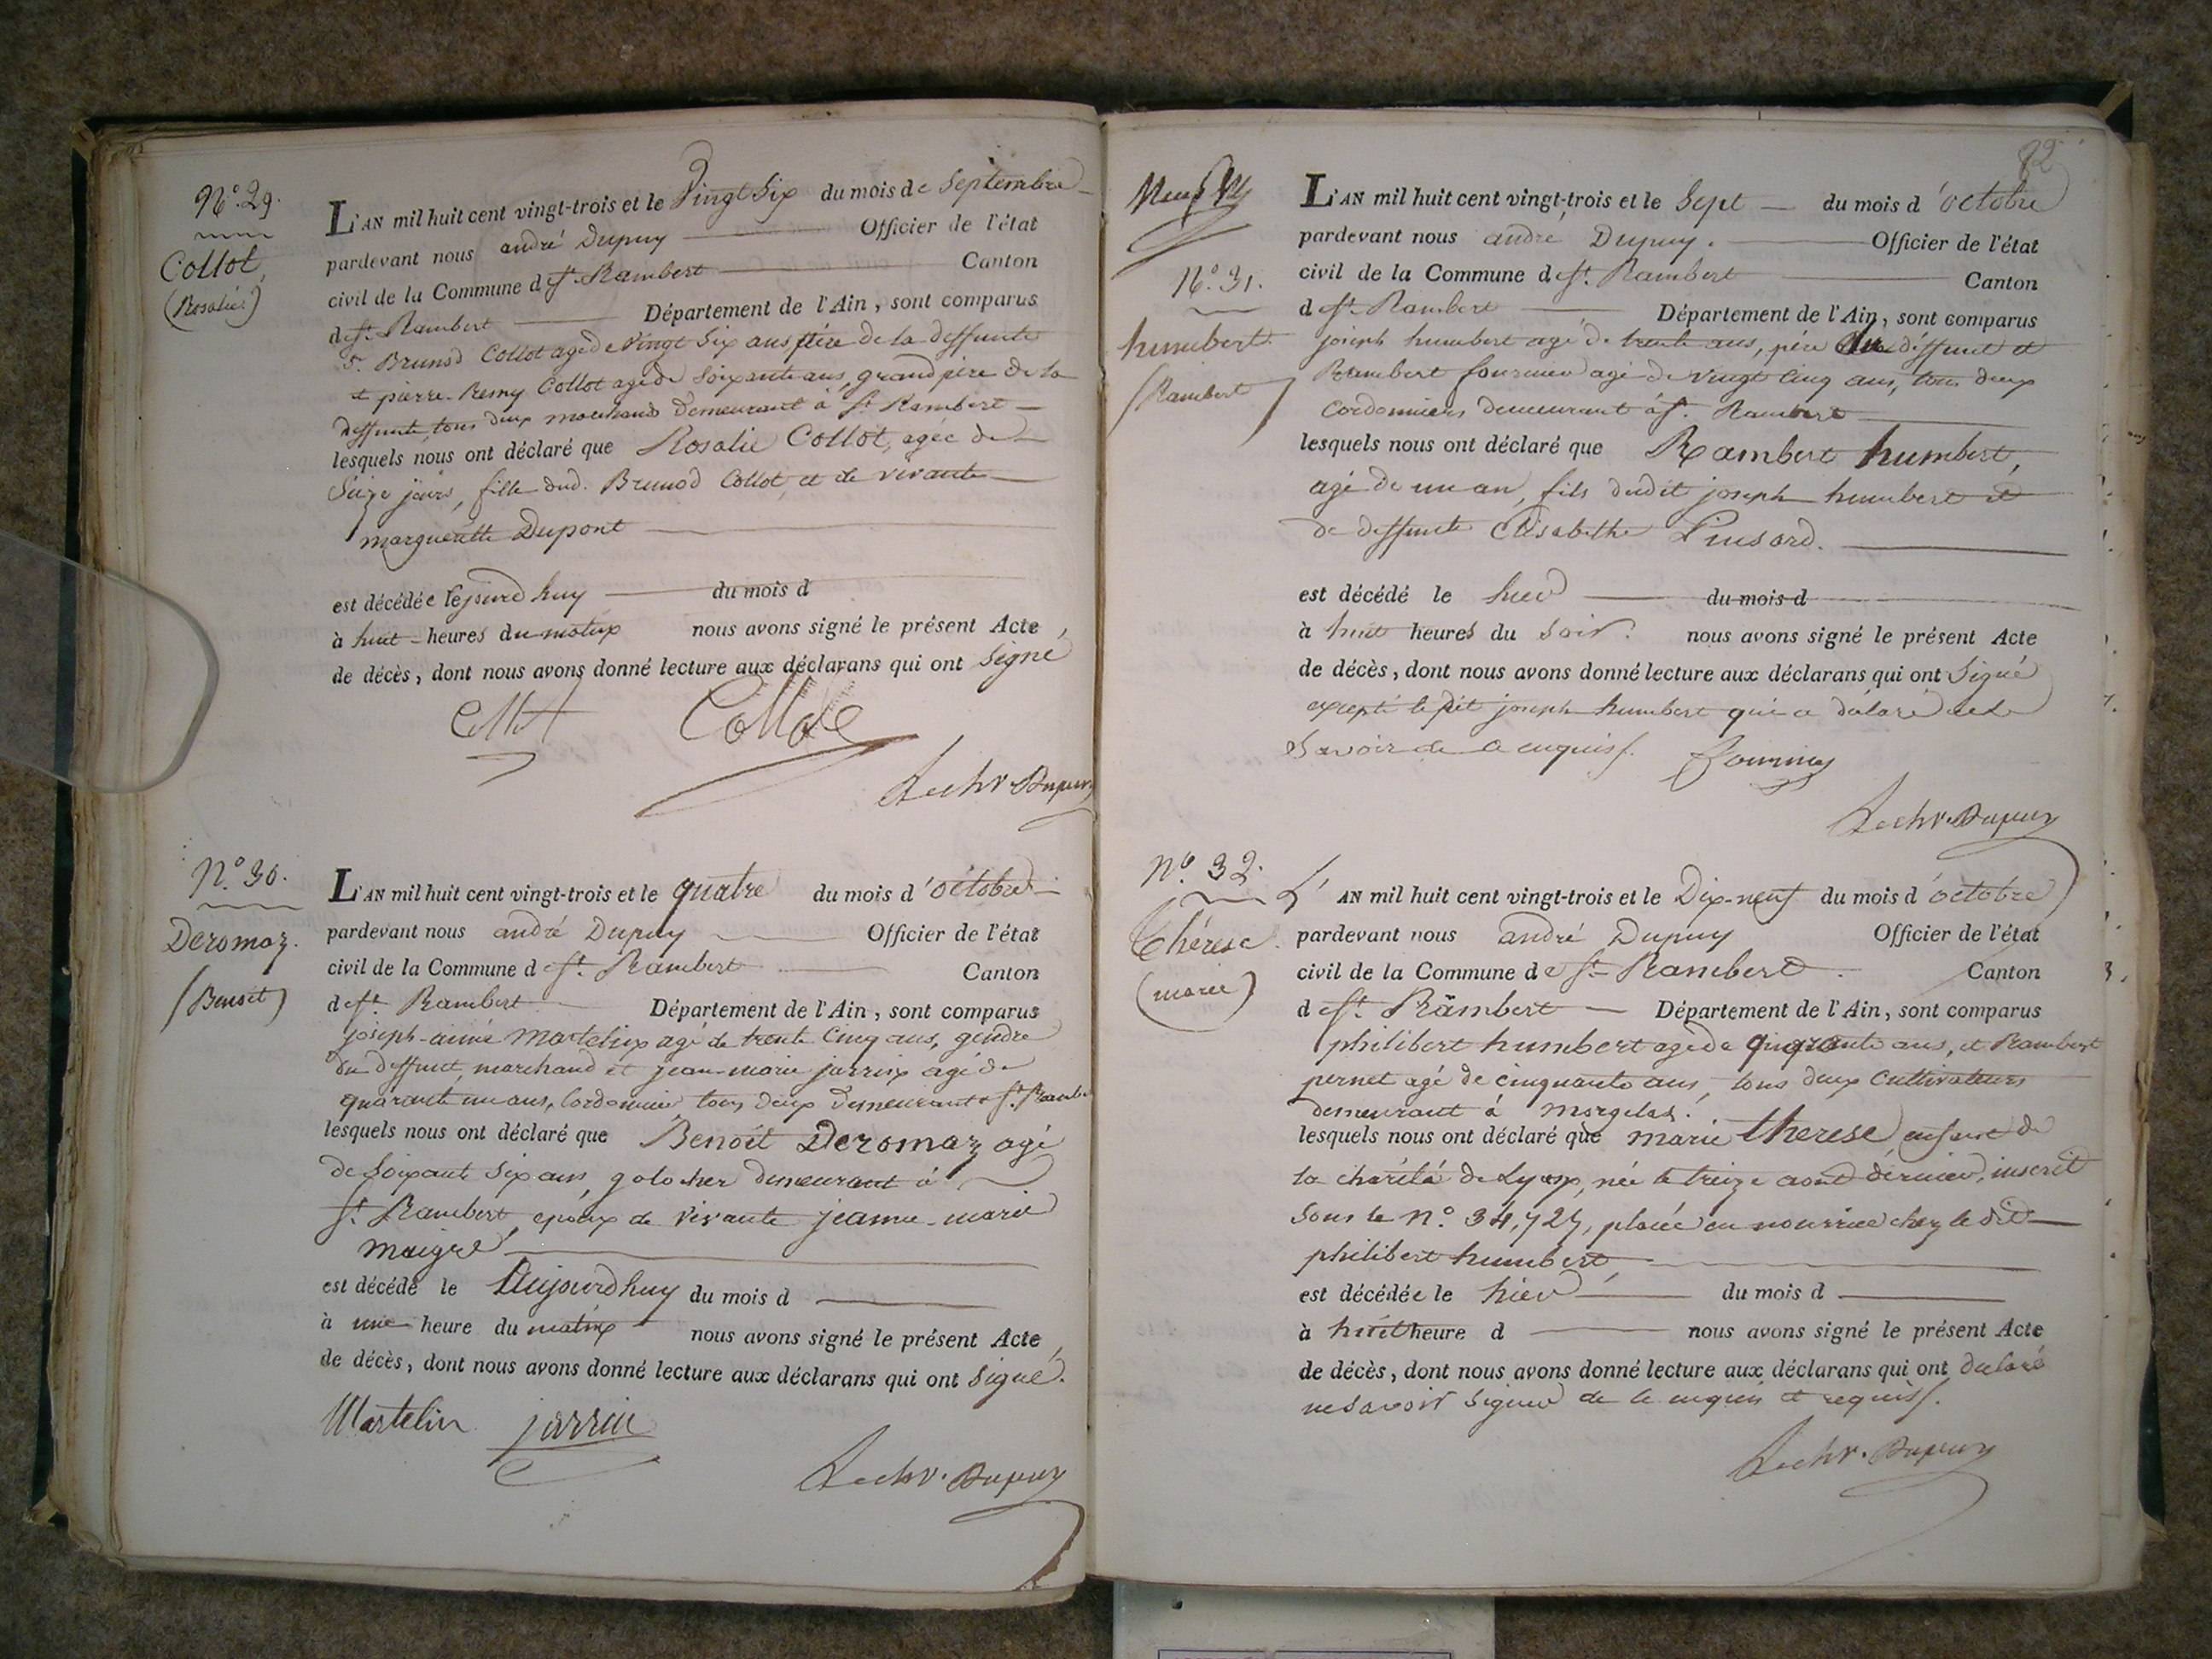 N.º 29.
Collot,
(Rosalie)
L'AN mil huit cent vingt-trois et le Vingt Six du mois de Septembre
pardevant nous andré Dupuy Officier de l'état
civil de la Commune de St. Rambert Canton
de St. Rambert Département de l'Ain, sont comparus
Collot agé de Vingt Six ans père de la deffunte
et pierre-Remy Collot agé de Soixante ans, grand père de la
deffunte, tous deux marchands demeurant à St. Rambert
lesquels nous ont déclaré que Rosalie Collot, agée de
Seize jours, fille dud. Collot, et de vivante
marguerite Dupont
est décédée le jourd huy du mois d
à huit heures du matin nous avons signé le présent Acte
de décès, dont nous avons donné lecture aux déclarans qui ont Signé
Collot Collot
Dupuy
N.º 30.
Deromaz.
(Benoit)
L'AN mil huit cent vingt-trois et le quatre du mois d'octobre
pardevant nous andré Dupuy Officier de l'état
civil de la Commune de St. Rambert Canton
de St. Rambert Département de l'Ain, sont comparus
joseph-aimé Martelin agé de trente Cinq ans, gendre
du deffunt, marchand et jean-marie jarrin agé de
quarante un ans, Cordonnier, tous deux demeurant à St. Rambe
lesquels nous ont déclaré que Benoit Deromaz agé
de Soixante Six ans, galocher demeurant à
St. Rambert, epoux de vivante jeanne-marie
maigre
est décédé le Aujourdhuy du mois d
à une heure du matin nous avons signé le présent Acte
de décès, dont nous avons donné lecture aux déclarans qui ont Signé.
Martelin jarrin
Dupuy
82
N.º 31.
humbert
(Rambert)
L'AN mil huit cent vingt-trois et le Sept du mois d'octobre
pardevant nous andré Dupuy. Officier de l'état
civil de la Commune de St. Rambert Canton
de St. Rambert Département de l'Ain, sont comparus
joseph humbert agé de trente ans, père du deffunt et
Rambert fournier agé de vingt Cinq ans, tous deux
Cordonniers demeurant à St. Rambert
lesquels nous ont déclaré que Rambert humbert,
agé de un an, fils dudit joseph humbert et
de deffunte Elisabethe Pinsard.
est décédé le hier du mois d
à huit heures du Soir. nous avons signé le présent Acte
de décès, dont nous avons donné lecture aux déclarans qui ont Signé
excepté le dit joseph humbert qui a déclaré ne le
Savoir de ce enquis.
Dupuy
Nº. 32.
Thérese.
(marie)
L'AN mil huit cent vingt-trois et le Dix-neuf du mois d'octobre
pardevant nous andré Dupuy Officier de l'état
civil de la Commune de St. Rambert. Canton
de St. Rambert Département de l'Ain, sont comparus
philibert humbert agé de quarante ans, et Rambert
pernet agé de cinquante ans, tous deux Cultivateurs
demeurant à morgelas.
lesquels nous ont déclaré que marie therese enfant de
la charité de Lyon, née le treize aout dernier, inscrit
Sous le n.º 34,727, placée en nourrice chez le dit
philibert humbert,
est décédée le hier du mois d
à huit heure d nous avons signé le présent Acte
de décès, dont nous avons donné lecture aux déclarans qui ont déclaré
ne savoir Signer de ce enquis et requis.
Dupuy